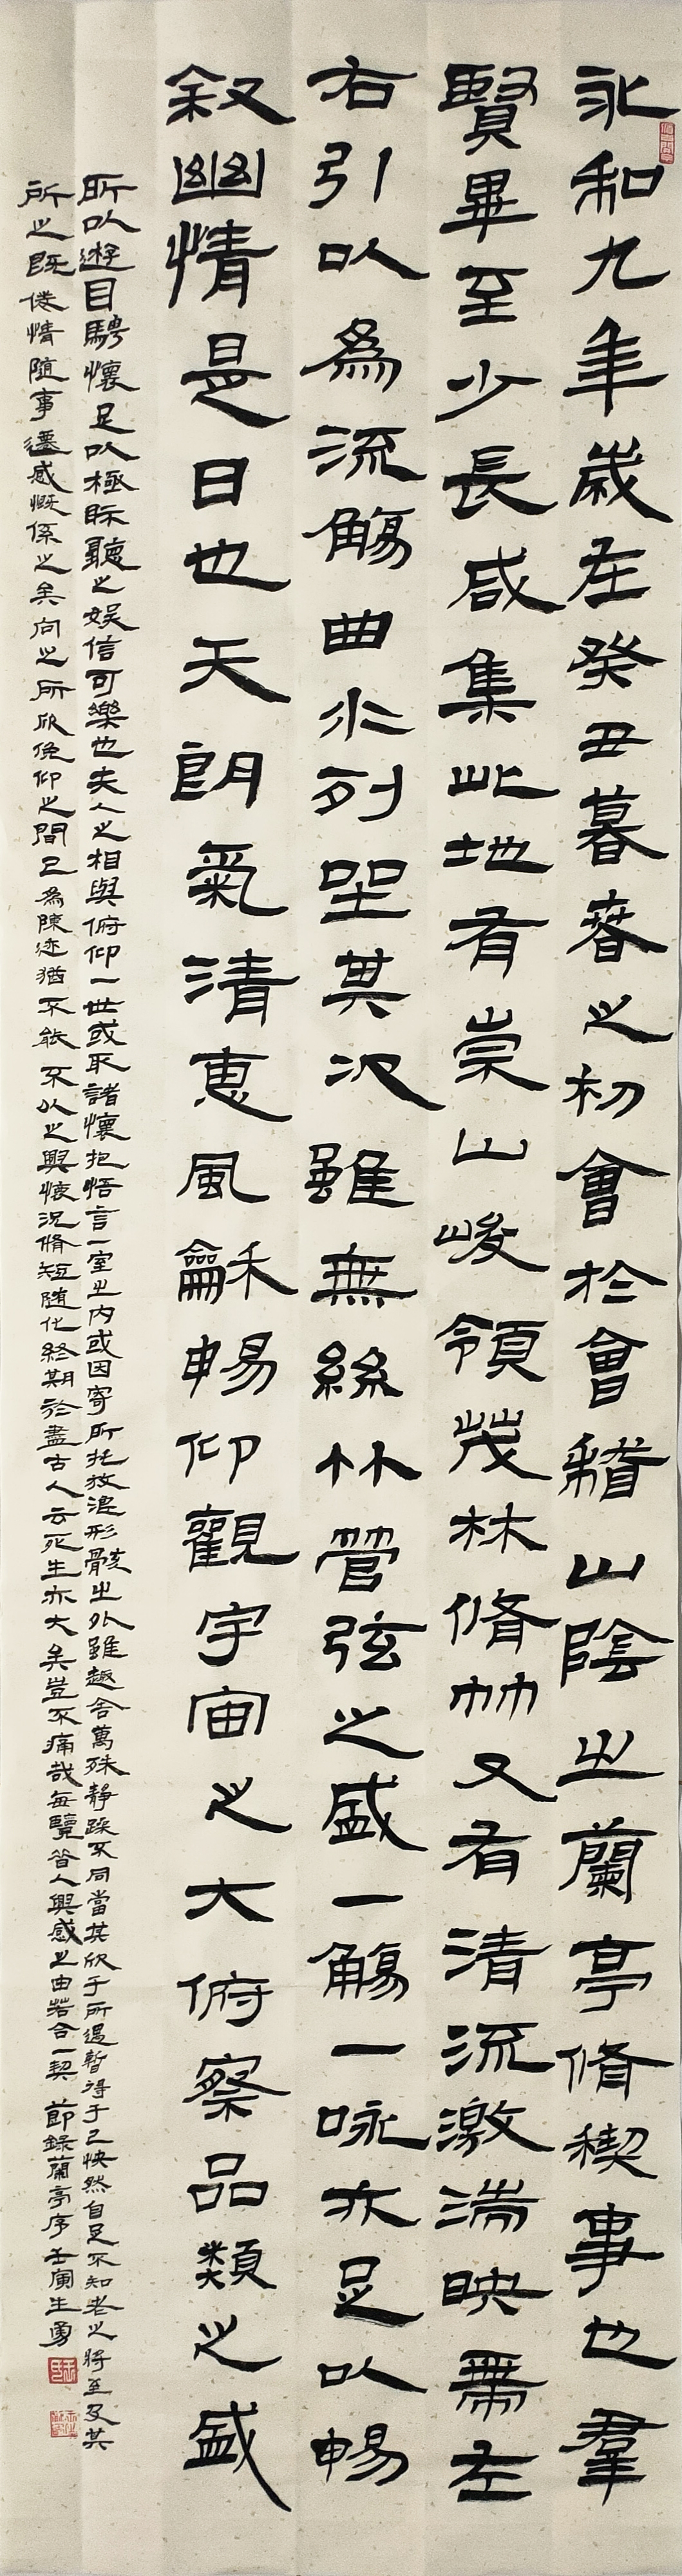 永和九年歲在癸丑暮春之初會於會稽山陰之蘭亭脩禊事也羣
賢畢至少長咸集此地有崇山峻領茂林脩竹又有清流激湍映帶左
右引以爲流觴曲水列坐其次雖無絲竹管弦之盛一觴一咏亦足以暢
叙幽情是日也天朗氣清惠風龢暢仰觀宇宙之大俯察品類之盛
所以遊目騁懷足以極視聽之娛信可樂也夫人之相與俯仰一世或取諸懷抱悟言一室之内或因寄所托放浪形骸之外雖趣舍萬殊静躁不同當其欣于所遇暫得于己快然自足不知老之將至及其
所之既倦情随事遷感慨係之矣向之所欣俛仰之間已爲陳迹猶不能不以之興懷況脩短随化終期於盡古人云死生亦大矣豈不痛哉每覽昔人興感之由若合一契 節錄蘭亭序 壬寅生勇